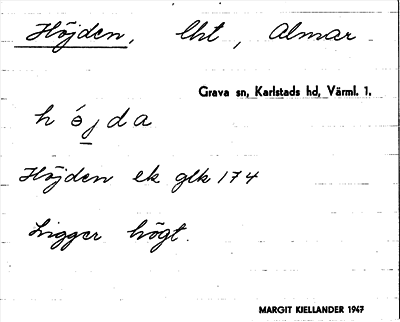 Höjden, lht, Almar
Grava sn, Karlstads hd, Värml. l.
h ö́j d a
Höjden ek glk 174
Ligger högt.
MARGIT KJELLANDER 1947